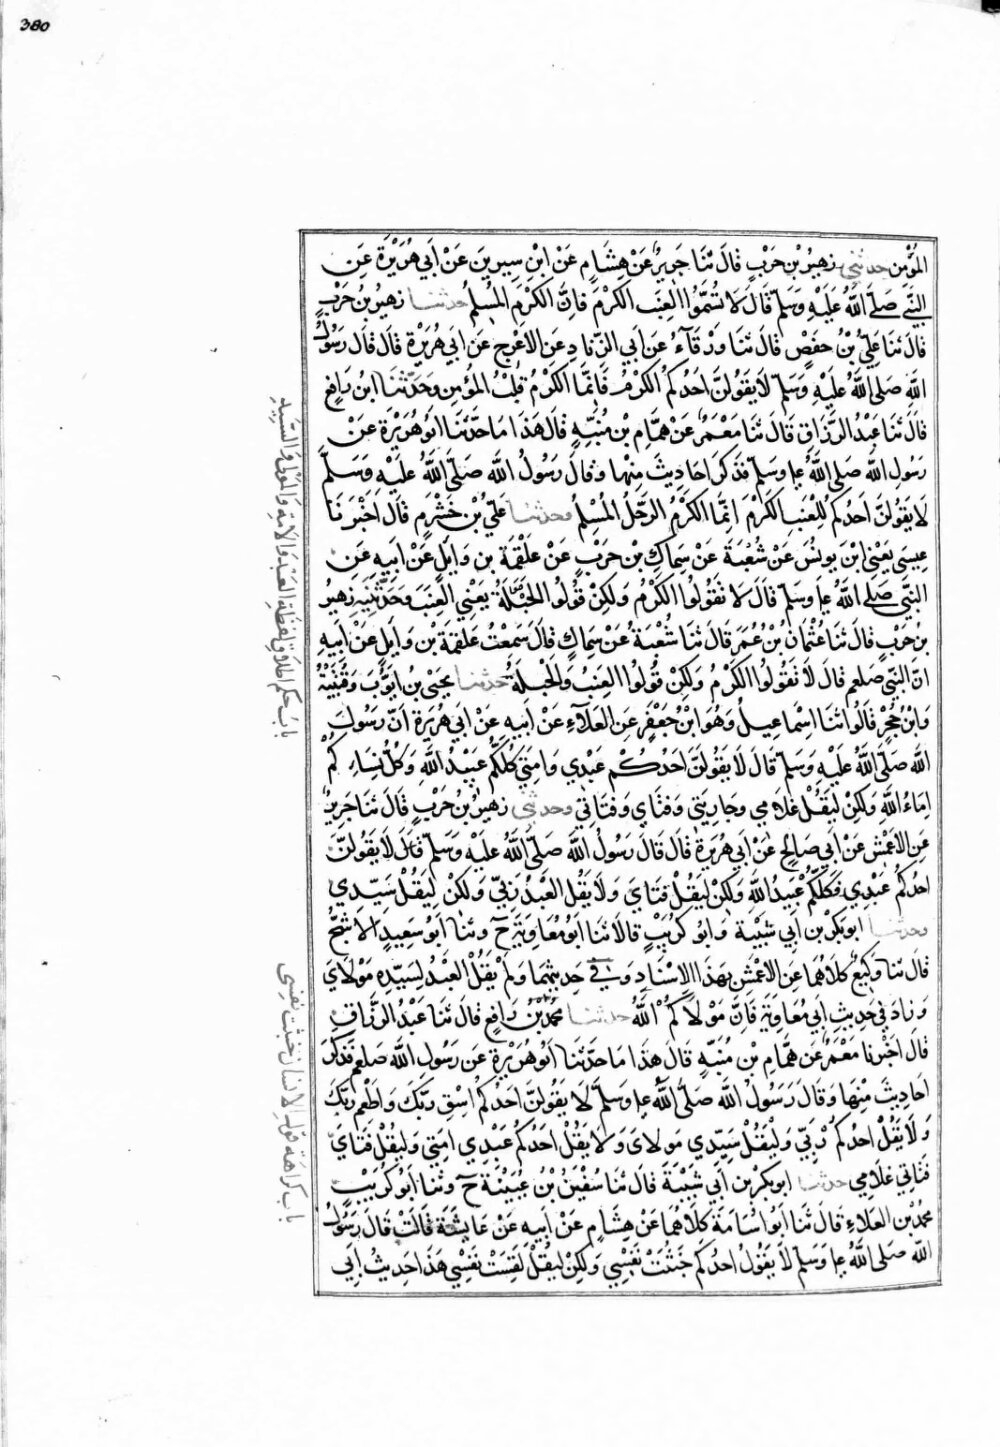 380
المؤمن حدثني زهير بن حرب قال ثنا جرير عن هشام عن ابن سيرين عن أبي هريرة عن
النبي صلى الله عليه وسلم قال لا تسموا العنب الكرم فان الكرم المسلم حدثنا زهير بن حرب
قال ثنا علي بن حفص قال ثنا ورقاء عن ابي الزناد عن الاعرج عن ابي هريرة قال قال رسول
الله صلى الله عليه وسلم لا يقولن احدكم الكرم فانما الكرم قلب المؤمن وحدثنا ابن رافع
قال ثنا عبد الرزاق قال ثنا معمر عن همام بن منبه قال هذا ما حدثنا ابو هريرة عن
رسول الله صلى الله ع‍ وسلم فذكر احاديث منها وقال رسول الله صلى الله عليه وسلم
لا يقولن احدكم للعنب الكرم انما الكرم الرجل المسلم وحدثنا علي بن خشرم قال اخبرنا
عيسى يعني ابن يونس عن شعبة عن سماك بن حرب عن علقمة بن وايل عن ابيه عن
النبي صلى الله ع‍ وسلم قال لا تقولوا الكرم ولكن قولوا الحبلة يعني العنب وحدثنيه زهير
بن حرب قال ثنا عثمان بن عمر قال ثنا شعبة عن سماك قال سمعت علقمة بن وايل عن ابيه
ان النبي صلعم قال لا تقولوا الكرم ولكن قولوا العنب والحبلة حدثنا يحيى بن ايوب وقتيبة
وابن حجر قالوا ثنا اسماعيل وهو ابن جعفر عن العلاء عن ابيه عن ابي هريرة ان رسول
الله صلى الله عليه وسلم قال لا يقولن احدكم عبدي وامتي كلكم عبيد الله وكل نساءكم
اماء الله ولكن ليقل غلامي وجاريتي وفتاي وفتاتي وحدثني زهير بن حرب قال ثنا جرير
عن الاعمش عن ابي صالح عن ابي هريرة قال قال رسول الله صلى الله عليه وسلم قال لا يقولن
احدكم عبدي فكلكم عبيد الله ولكن ليقل فتاي ولا يقل العبد ربي ولكن ليقل سيدي
وحدثنا ابو بكر بن ابي شيبة وابو كريب قالا ثنا ابو معاوية ح وثنا ابو سعيد الاشج
قال ثنا وكيع كلاهما عن الاعمش بهذا الاسناد وفي حديثهما ولا يقل العبد لسيده مولاي
وزاد في حديث ابي معاوية فان مولاكم الله حدثنا محمد بن رافع قال ثنا عبد الرزاق
قال اخبرنا معمر عن همام بن منبه قال هذا ما حدثنا ابو هريرة عن رسول الله صلعم فذكر
احاديث منها وقال رسول الله صلى الله ع‍ وسلم لا يقولن احدكم اسق ربك واطعم ربك
ولا يقل احدكم ربي وليقل سيدي مولاى ولا يقل احدكم عبدي امتي وليقل فتاي
فتاتي غلامي حدثنا ابو بكر بن ابي شيبة قال ثنا سفين بن عيينة ح وثنا ابو كريب
محمد بن العلاء قال ثنا ابو اسامة كلاهما عن هشام عن ابيه عن عايشة قالت قال رسول
الله صلى الله ع‍ وسلم لا يقول احدكم خبثت نفسي ولكن ليقل لقست نفسي هذا حديث ابي
باب حكم اطلاق لفظة العبد والامة والمولى والسيد
باب كراهة قول الانسان خبثت نفسي